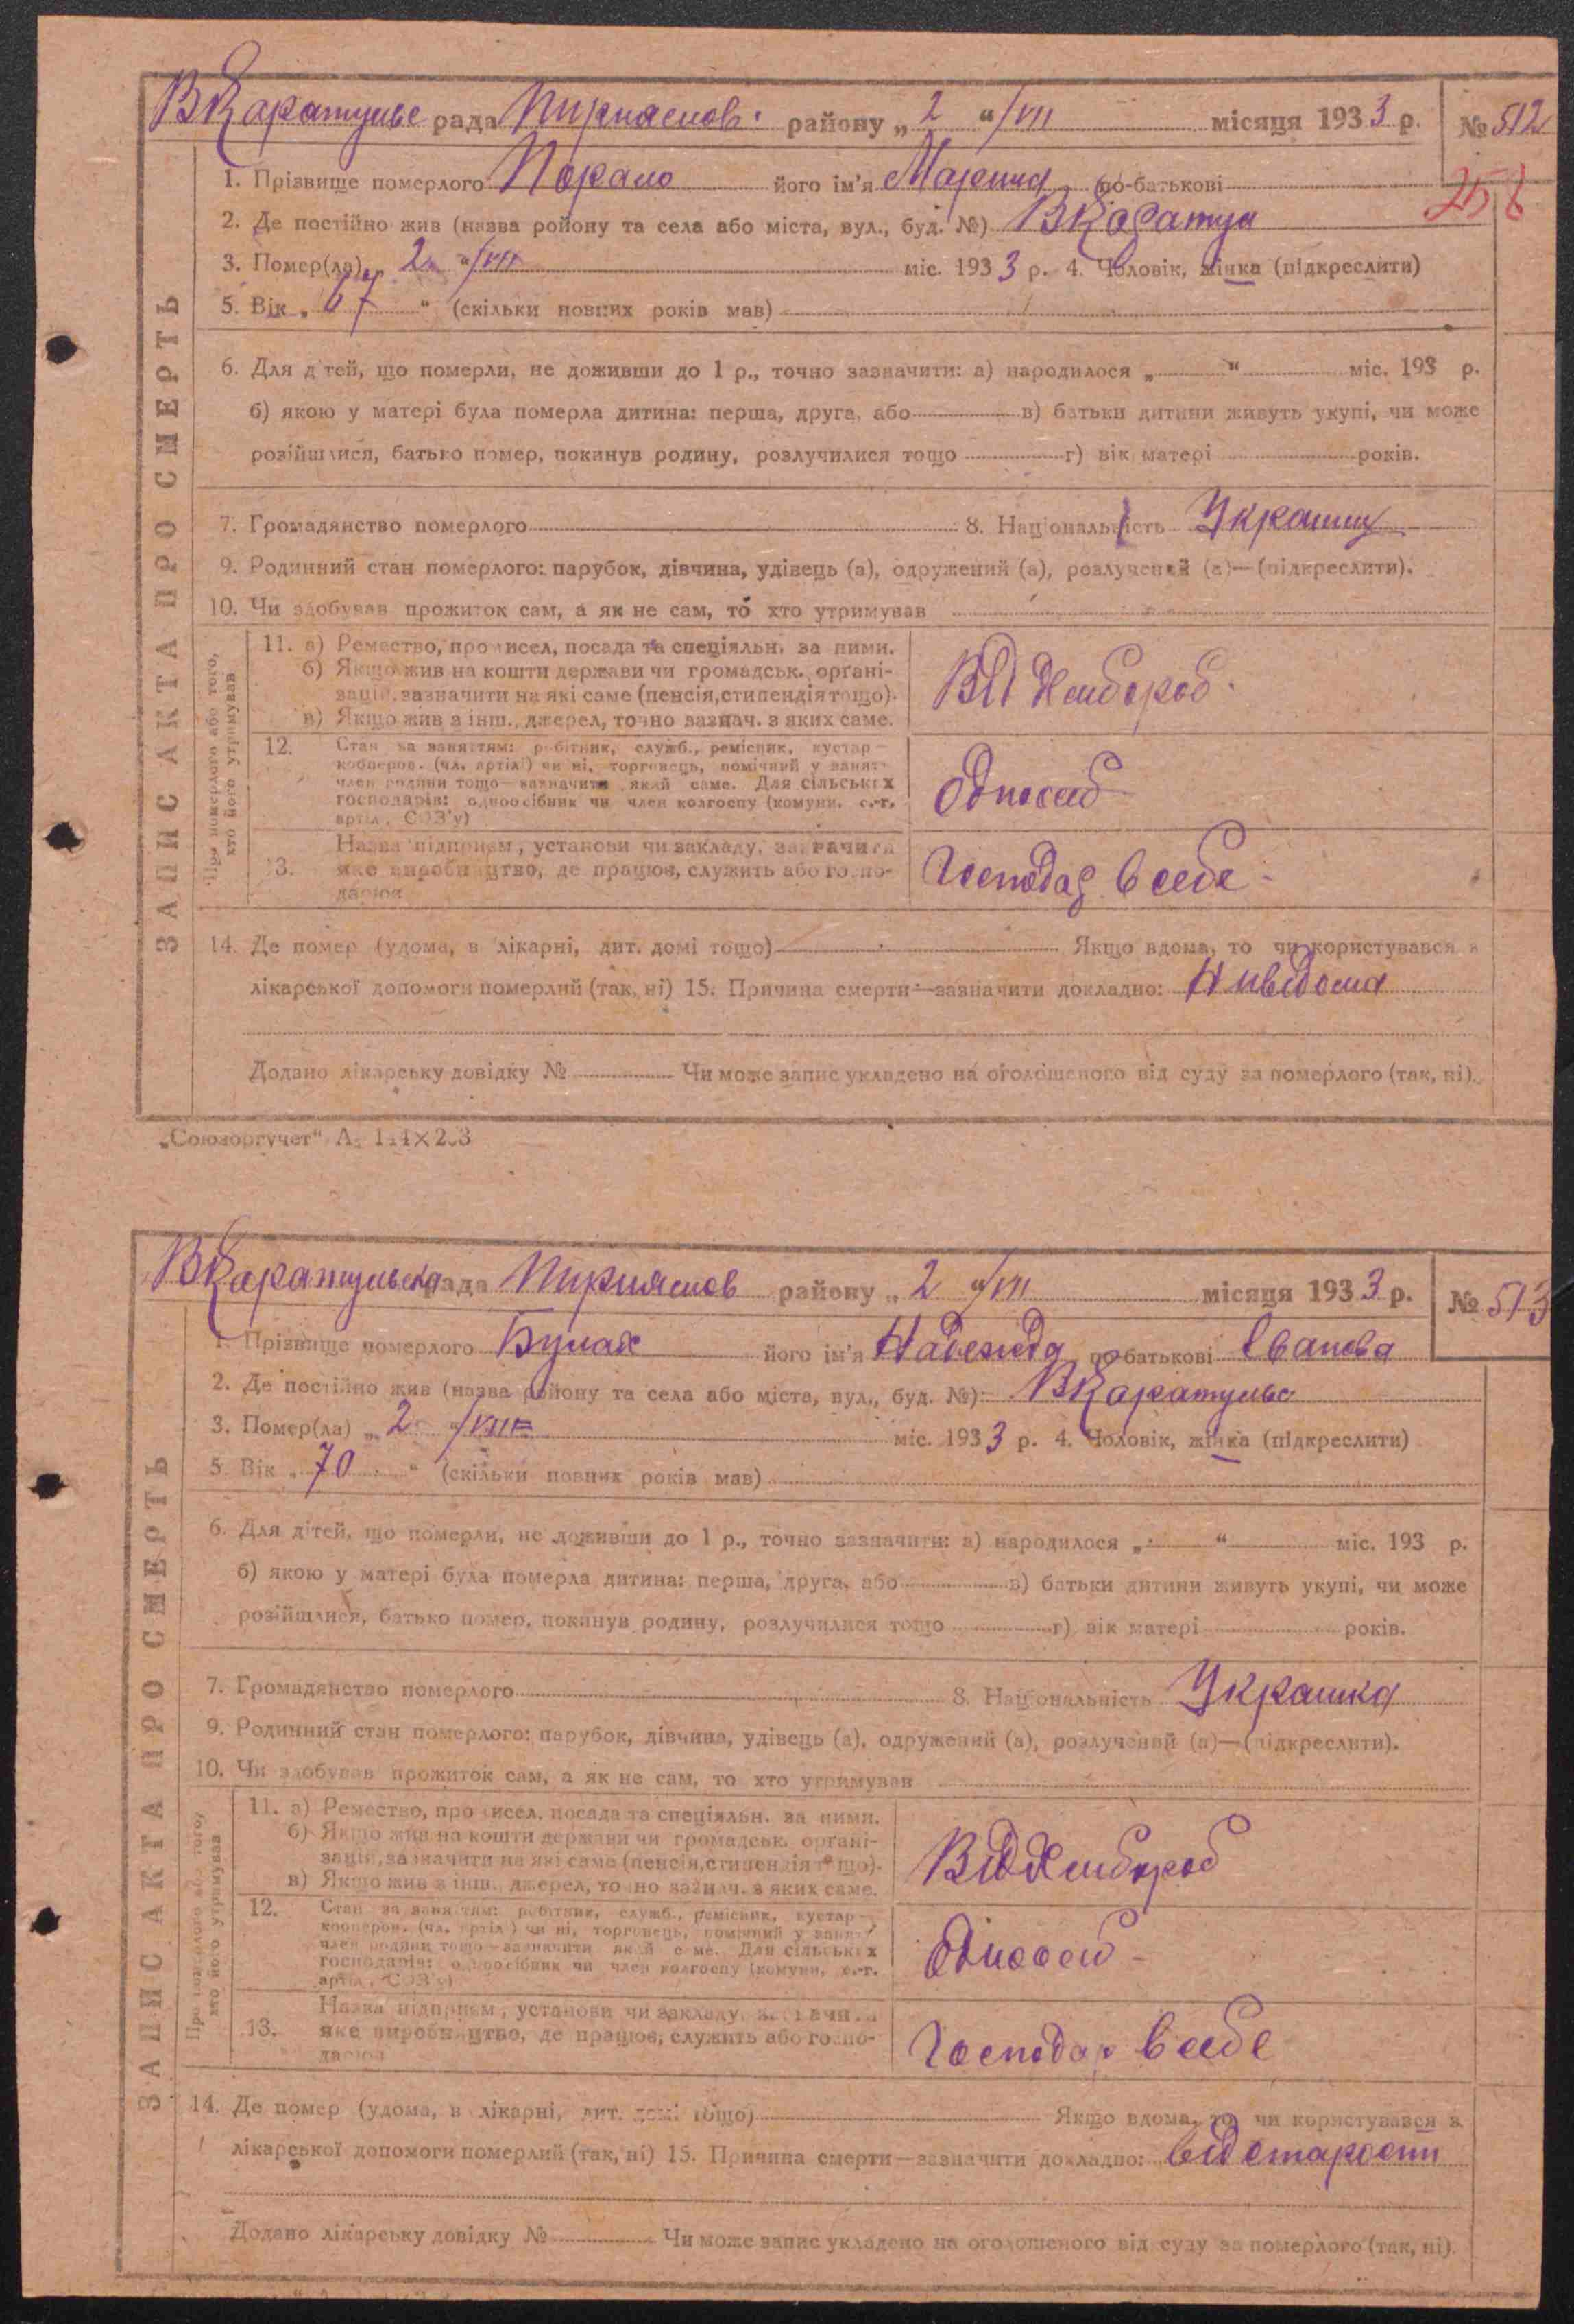 ВКаратульс рада Пирияслов. району „ 2 “ /VII місяця 1933 р. № 512
1. Прізвище померлого його ім'я Марина по-батькові
258
2. Де постійно жив (назва ройону та села або міста, вул., буд. №) ВКаратул
3. Помер(ла) „ 2 “ /VII міс. 1933 р. 4. Чоловік, жінка (підкреслити)
5. Вік „ 67 “ (скільки повних років мав)
6. Для дітей, що померли, не доживши до 1 р., точно зазначити: а) народилося „ “ міс. 193 р.
б) якою у матері була померла дитина: перша, друга, або в) батьки дитини живуть укупі, чи може
розійшлися, батько помер, покинув родину, розлучилися тощо г) вік матері років.
7. Громадянство померлого 8. Національність Украинц
9. Родинний стан померлого: парубок, дівчина, удівець (а), одружений (а), розлучений (а)—(підкреслити).
10. Чи здобував прожиток сам, а як не сам, то хто утримував
ЗАПИС АКТА ПРО СМЕРТЬ
Про померлого або того, хто його утримував
11. а) Ремество, промисел, посада та спеціяльн. за ними.
б) Якщо жив на кошти держави чи громадськ. орґані-
зацій, зазначити на які саме (пенсія, стипендія тощо).
в) Якщо жив з інш., джерел, точно зазнач. з яких саме.
Від Хлібороб.
12. Стан за заняттям: робітник, служб., ремісник, кустар—
кооперов. (чл. артілі) чи ні, торговець, помічний у занят.
член родини тощо—зазначити який саме. Для сільських
господарів: одноосібник чи член колгоспу (комуни, с.-г.
артіл., СОЗ'у)
Одноосіб
13. Назва підприєм., установи чи закладу, зазначити
яке виробництво, де працює, служить або госпо-
дарює
Господар в себе
14. Де помер (удома, в лікарні, дит. домі тощо) Якщо вдома, то чи користувався з
лікарської допомоги померлий (так, ні) 15. Причина смерти—зазначити докладно: Нивідома
Додано лікарську довідку № Чи може запис укладено на оголошеного від суду за померлого (так, ні).
„Союзоргучет“ А
ВКаратульська рада Пирияслов району „ 2 “ /VII місяця 1933 р. № 513
1. Прізвище померлого Булах його ім'я Надежда по батькові Іванова
2. Де постійно жив (назва ройону та села або міста, вул., буд. №) ВКаратульс
3. Помер(ла) „ 2 “ /VII міс. 1933 р. 4. Чоловік, жінка (підкреслити)
5. Вік „ 70 “ (скільки повних років мав)
6. Для дітей, що померли, не доживши до 1 р., точно зазначити: а) народилося „ “ міс. 193 р.
б) якою у матері була померла дитина: перша, друга, або в) батьки дитини живуть укупі, чи може
розійшлися, батько помер, покинув родину, розлучилися тощо г) вік матері років.
7. Громадянство померлого 8. Національність Украинка
9. Родинний стан померлого: парубок, дівчина, удівець (а), одружений (а), розлучений (а)—(підкреслити).
10. Чи здобував прожиток сам, а як не сам, то хто утримував
ЗАПИС АКТА ПРО СМЕРТЬ
Про померлого або того, хто його утримував
11. а) Ремество, промисел, посада та спеціяльн. за ними.
б) Якщо жив на кошти держави чи громадськ. орґані-
зацій, зазначити на які саме (пенсія, стипендія тощо).
в) Якщо жив з інш., джерел, точно зазнач. з яких саме.
Від Хлібороб
12. Стан за заняттям: робітник, служб., ремісник, кустар—
кооперов. (чл. артілі) чи ні, торговець, помічний у занят.
член родини тощо—зазначити який саме. Для сільських
господарів: одноосібник чи член колгоспу (комуни, с.-г.
артіл., СОЗ'у)
Одноосіб
13. Назва підприєм., установи чи закладу, зазначити
яке виробництво, де працює, служить або госпо-
дарює
Господар в себе
14. Де помер (удома, в лікарні, дит. домі тощо) Якщо вдома, то чи користувався з
лікарської допомоги померлий (так, ні) 15. Причина смерти—зазначити докладно: від старости
Додано лікарську довідку № Чи може запис укладено на оголошеного від суду за померлого (так, ні).